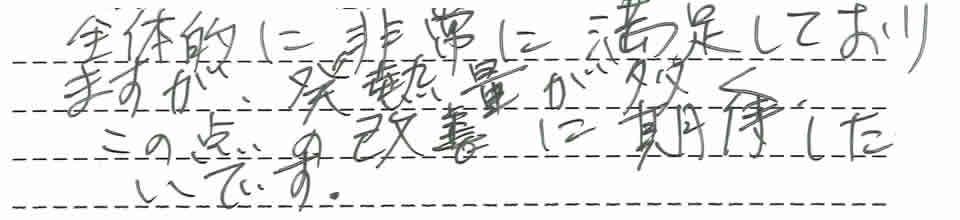 全体的に非常に満足しており
ますが、発熱量が多く
この点の改善に期待した
いです.